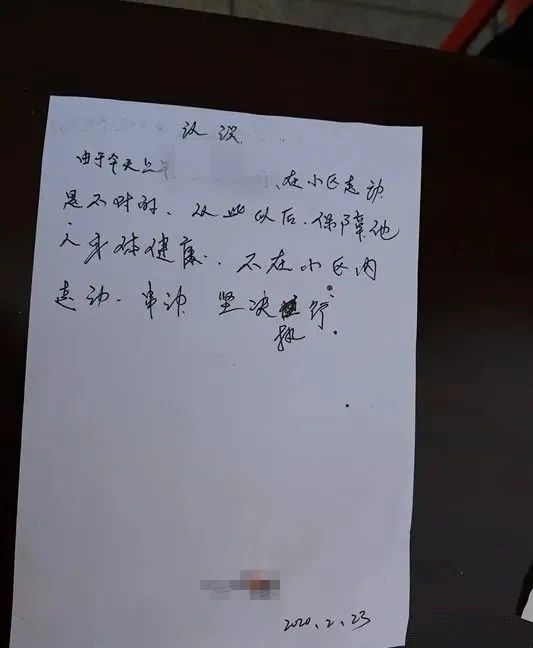 认识
由于今天上午 、在小区走动
是不对的、从此以后、保障他
人身体健康、不在小区内
走动、串动 坚决执行.
2020.2.23